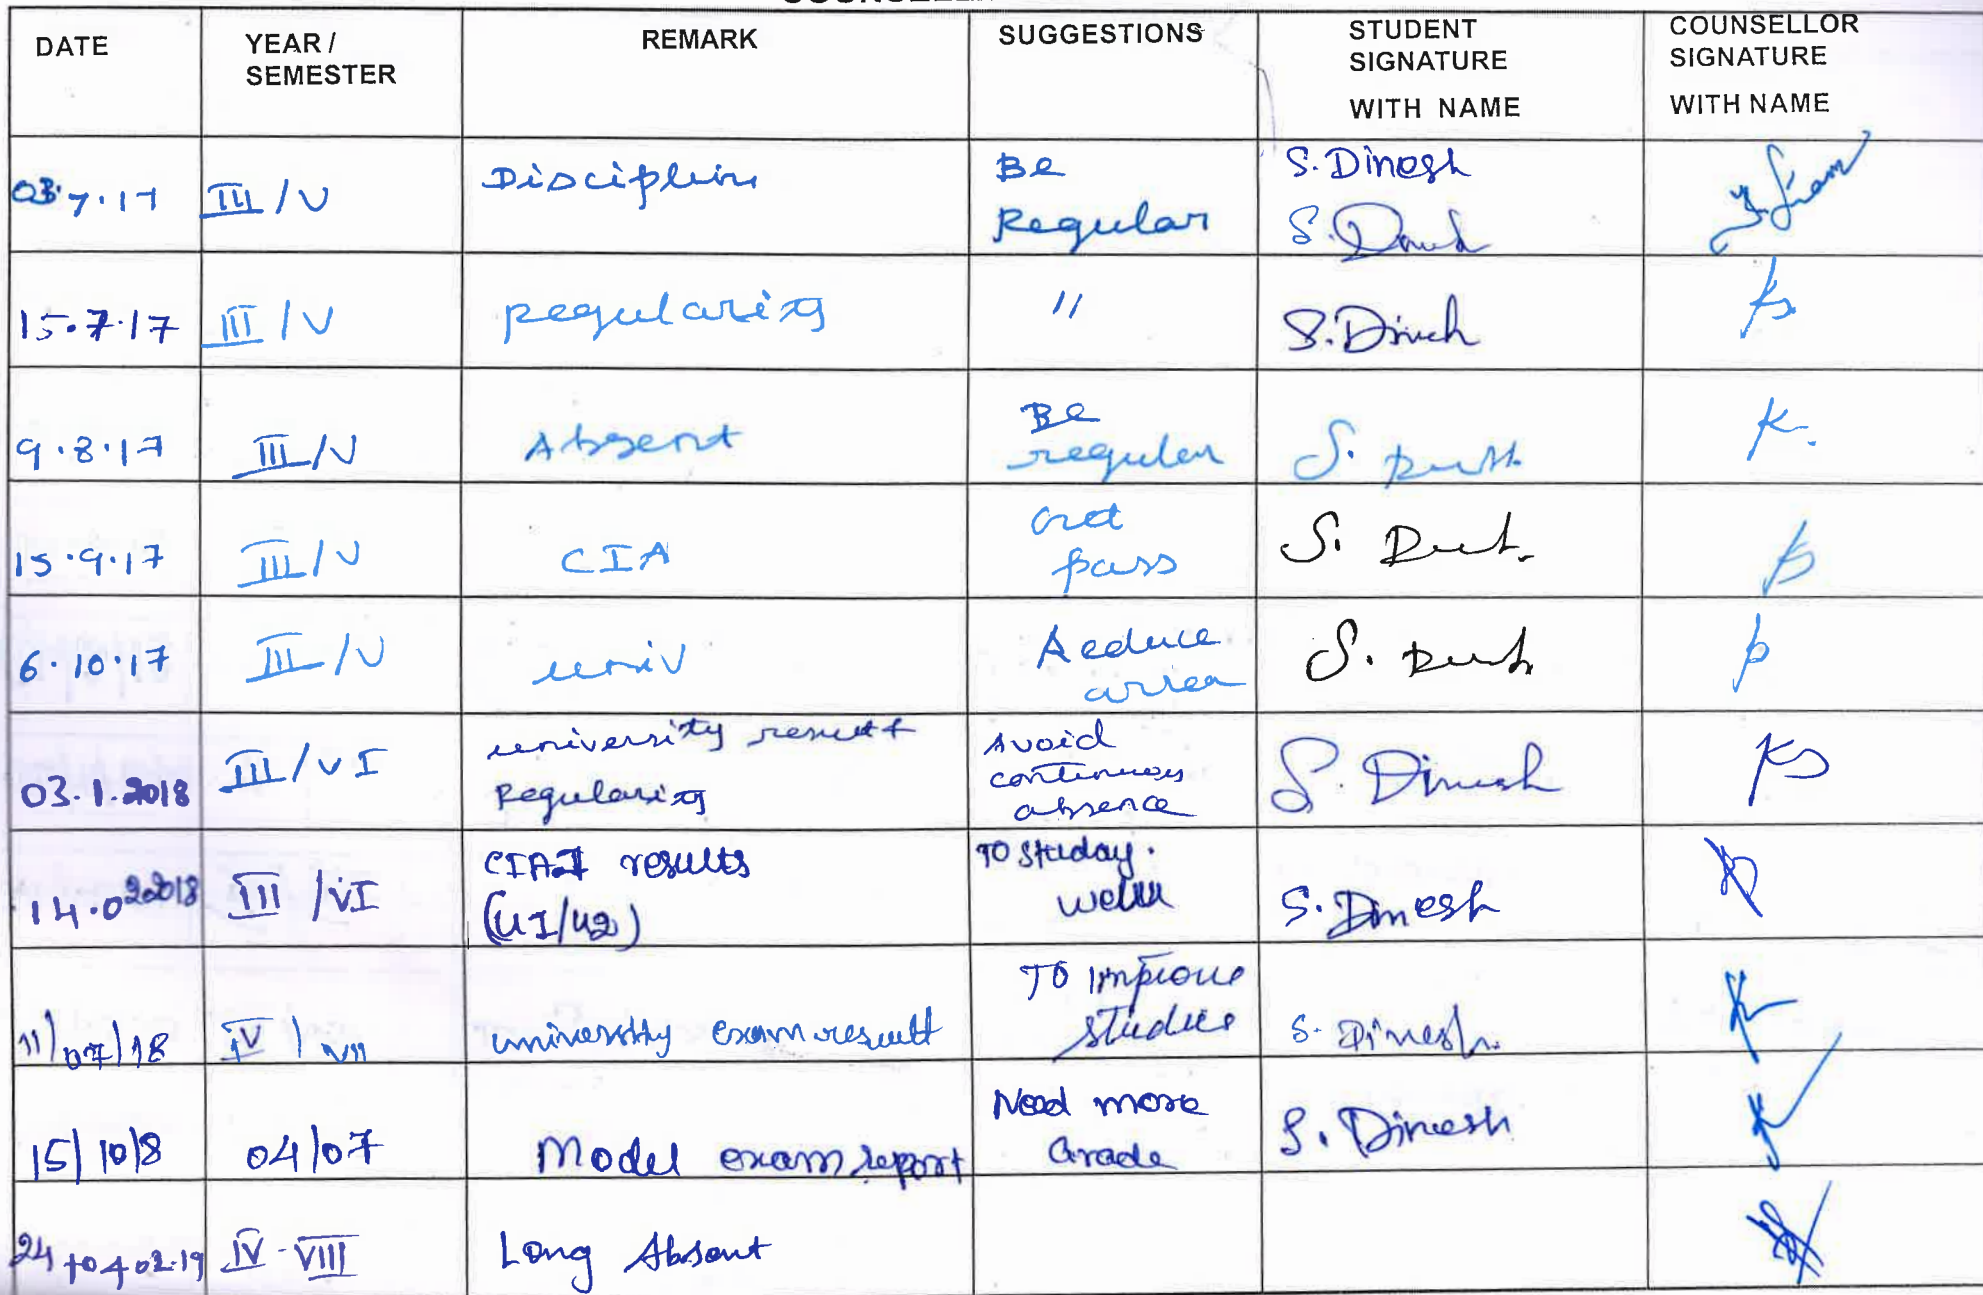 DATE YEAR / SEMESTER REMARK SUGGESTIONS STUDENT SIGNATURE WITH NAME COUNSELLOR SIGNATURE WITH NAME
03.7.17 III/V Disciplin Be Regular S. Dinesh
15.7.17 III/V Regularity " S. Dinesh
9.8.17 III/V Absent Be regular
15.9.17 III/V CIA Get pass
6.10.17 III/V univ Reduce arrear
03.1.2018 III/VI university result Regularity Avoid continuous absence S. Dinesh
14.02.2018 III/VI CIA I results (U1/U2) To studay. well S. Dinesh
11/07/18 IV/VII university exam result To Improve studies S. Dinesh.
15/10/8 04/07 Model exam report Need more Grade S. Dinesh
24 to 4 02.19 IV-VIII Long Absent